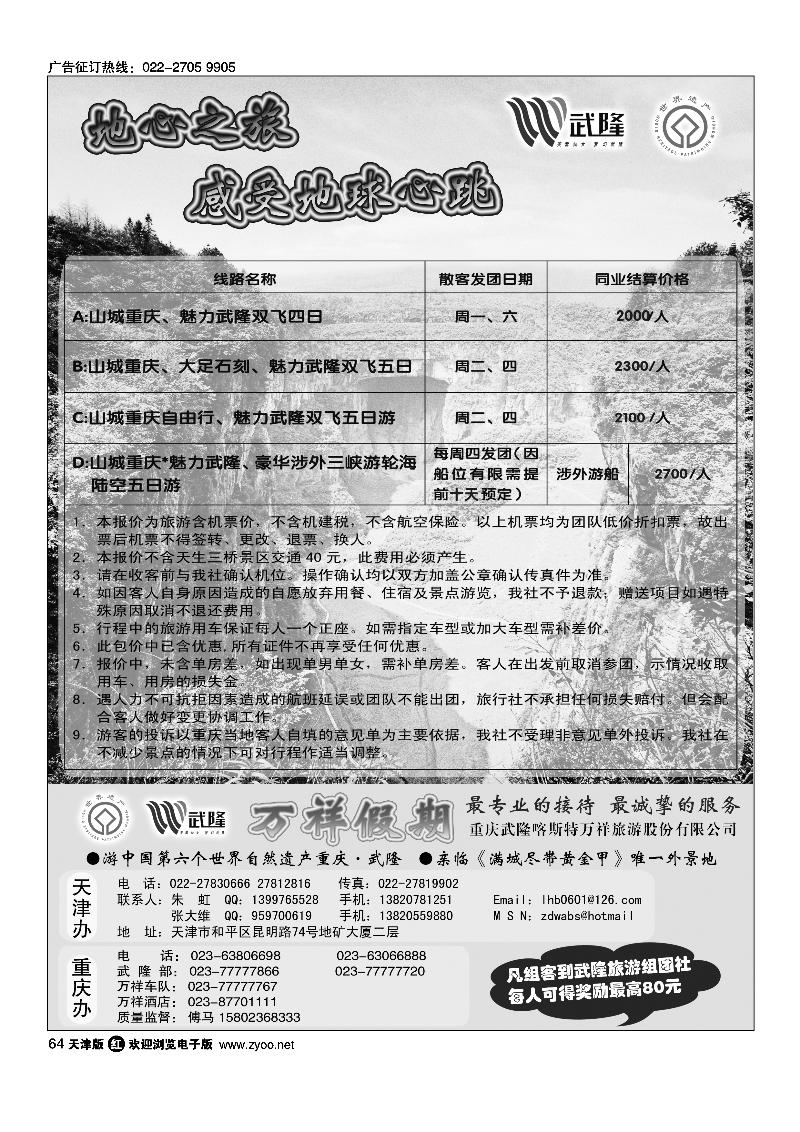 广告征订热线：022-2705 9905
地心之旅
感受地球心跳
武隆
世界遗产
线路名称 散客发团日期 同业结算价格
A:山城重庆、魅力武隆双飞四日 周一、六 2000/人
B:山城重庆、大足石刻、魅力武隆双飞五日 周二、四 2300/人
C:山城重庆自由行、魅力武隆双飞五日游 周二、四 2100/人
D:山城重庆*魅力武隆、豪华涉外三峡游轮海
陆空五日游
每周四发团（因
船位有限需提
前十天预定）
涉外游船 2700/人
1．本报价为旅游含机票价，不含机建税，不含航空保险。以上机票均为团队低价折扣票，故出
票后机票不得签转、更改、退票、换人。
2．本报价不含天生三桥景区交通 40 元，此费用必须产生。
3．请在收客前与我社确认机位。操作确认均以双方加盖公章确认传真件为准。
4．如因客人自身原因造成的自愿放弃用餐、住宿及景点游览，我社不予退款；赠送项目如遇特
殊原因取消不退还费用。
5．行程中的旅游用车保证每人一个正座。如需指定车型或加大车型需补差价。
6．此包价中已含优惠,所有证件不再享受任何优惠。
7．报价中，未含单房差，如出现单男单女，需补单房差。客人在出发前取消参团，示情况收取
用车、用房的损失金。
8．遇人力不可抗拒因素造成的航班延误或团队不能出团，旅行社不承担任何损失赔付。但会配
合客人做好变更协调工作。
9．游客的投诉以重庆当地客人自填的意见单为主要依据，我社不受理非意见单外投诉。我社在
不减少景点的情况下可对行程作适当调整。
世界遗产
武隆
万祥假期
最专业的接待 最诚挚的服务
重庆武隆喀斯特万祥旅游股份有限公司
●游中国第六个世界自然遗产重庆·武隆 ●亲临《满城尽带黄金甲》唯一外景地
天津办
电 话：022-27830666 27812816 传真：022-27819902
联系人：朱 虹 QQ：1399765528 手机：13820781251 Email：lhb0601@126.com
张大维 QQ：959700619 手机：13820559880 M S N：zdwabs@hotmail
地 址：天津市和平区昆明路74号地矿大厦二层
重庆办
电 话：023-63806698 023-63066888
武 隆 部：023-77777866 023-77777720
万祥车队：023-77777767
万祥酒店：023-87701111
质量监督：傅马 15802368333
凡组客到武隆旅游组团社
每人可得奖励最高80元
64 天津版 红 欢迎浏览电子版 www.zyoo.net